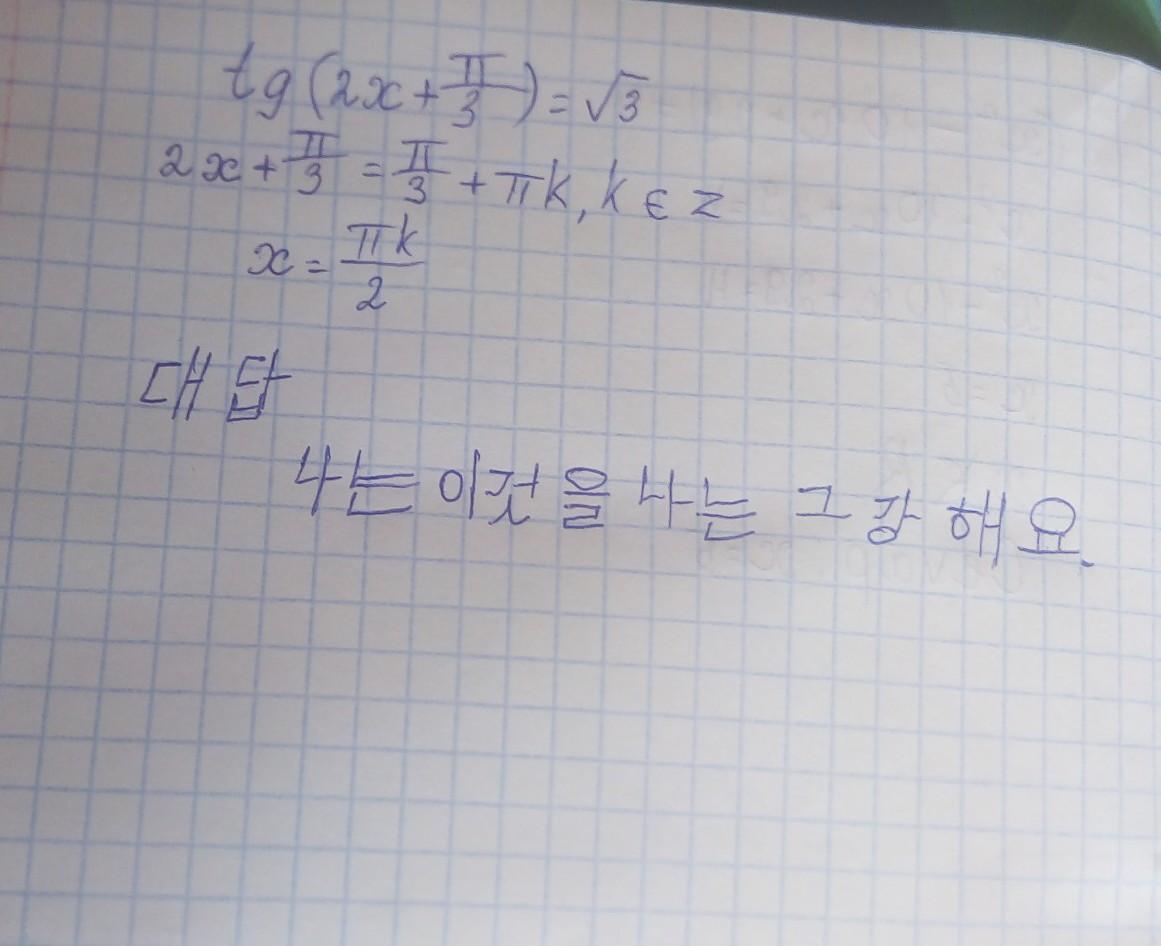 tg(2x+π/3)=√3
2x+π/3=π/3+πk, k∈z
x=πk/2
대답
나는 이것을 나는 그강 해요.